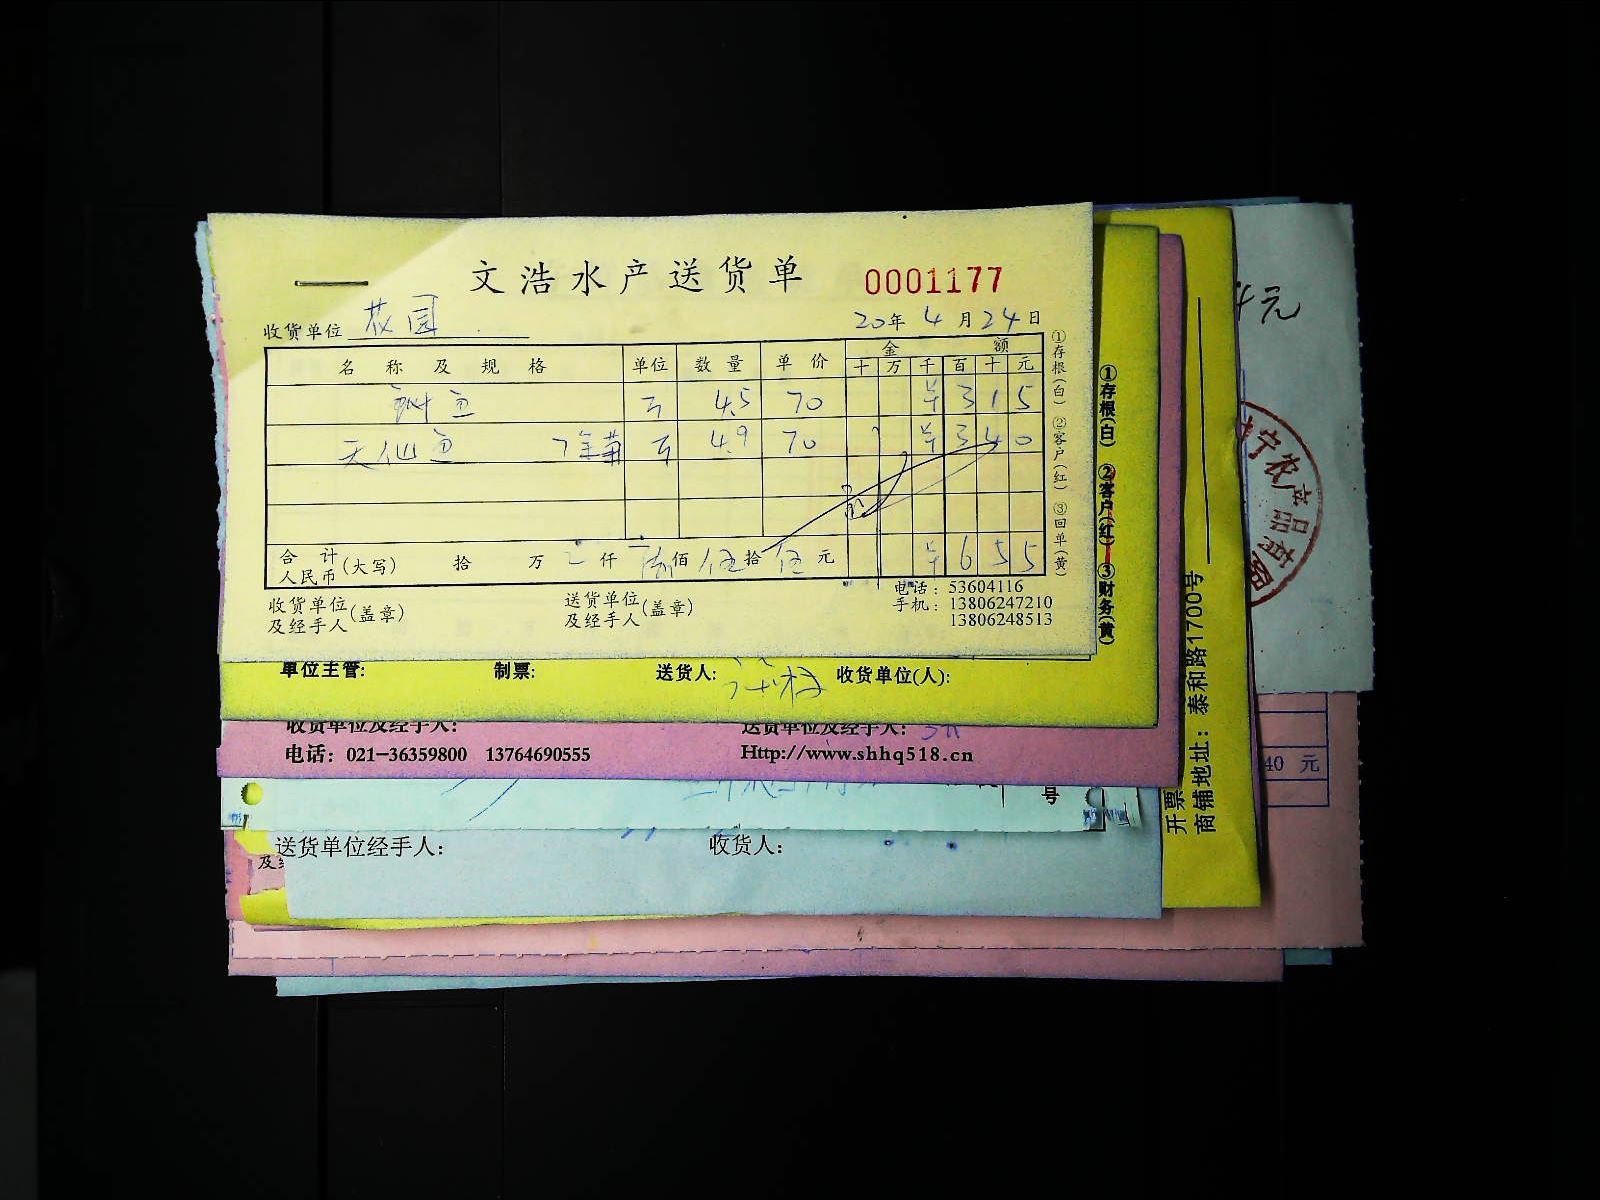 文浩水产送货单 0001177
收货单位 花园
20年4月24日
名称及规格 单位 数量 单价 金额
十 万 千 百 十 元
鱼 斤 4.5 70 3 1 5
天仙鱼 斤 4.9 70 3 4 0
合计人民币(大写) 拾 万 仟 陆佰 伍拾 伍元 6 5 5
收货单位及经手人(盖章) 送货单位及经手人(盖章)
电话:53604116
手机:13806247210
13806248513
①存根(白) ②客户(红) ③回单(黄)
①存根(白) ②客户(红) ③财务(黄)
单位主管: 制票: 送货人: 收货单位(人):
收货单位及经手人: 送货单位及经手人:
电话:021-36359800 13764690555 Http://www.shhq518.cn
号
送货单位经手人: 收货人:
开票
商铺地址:泰和路1700号
元
宁农产品
40 元